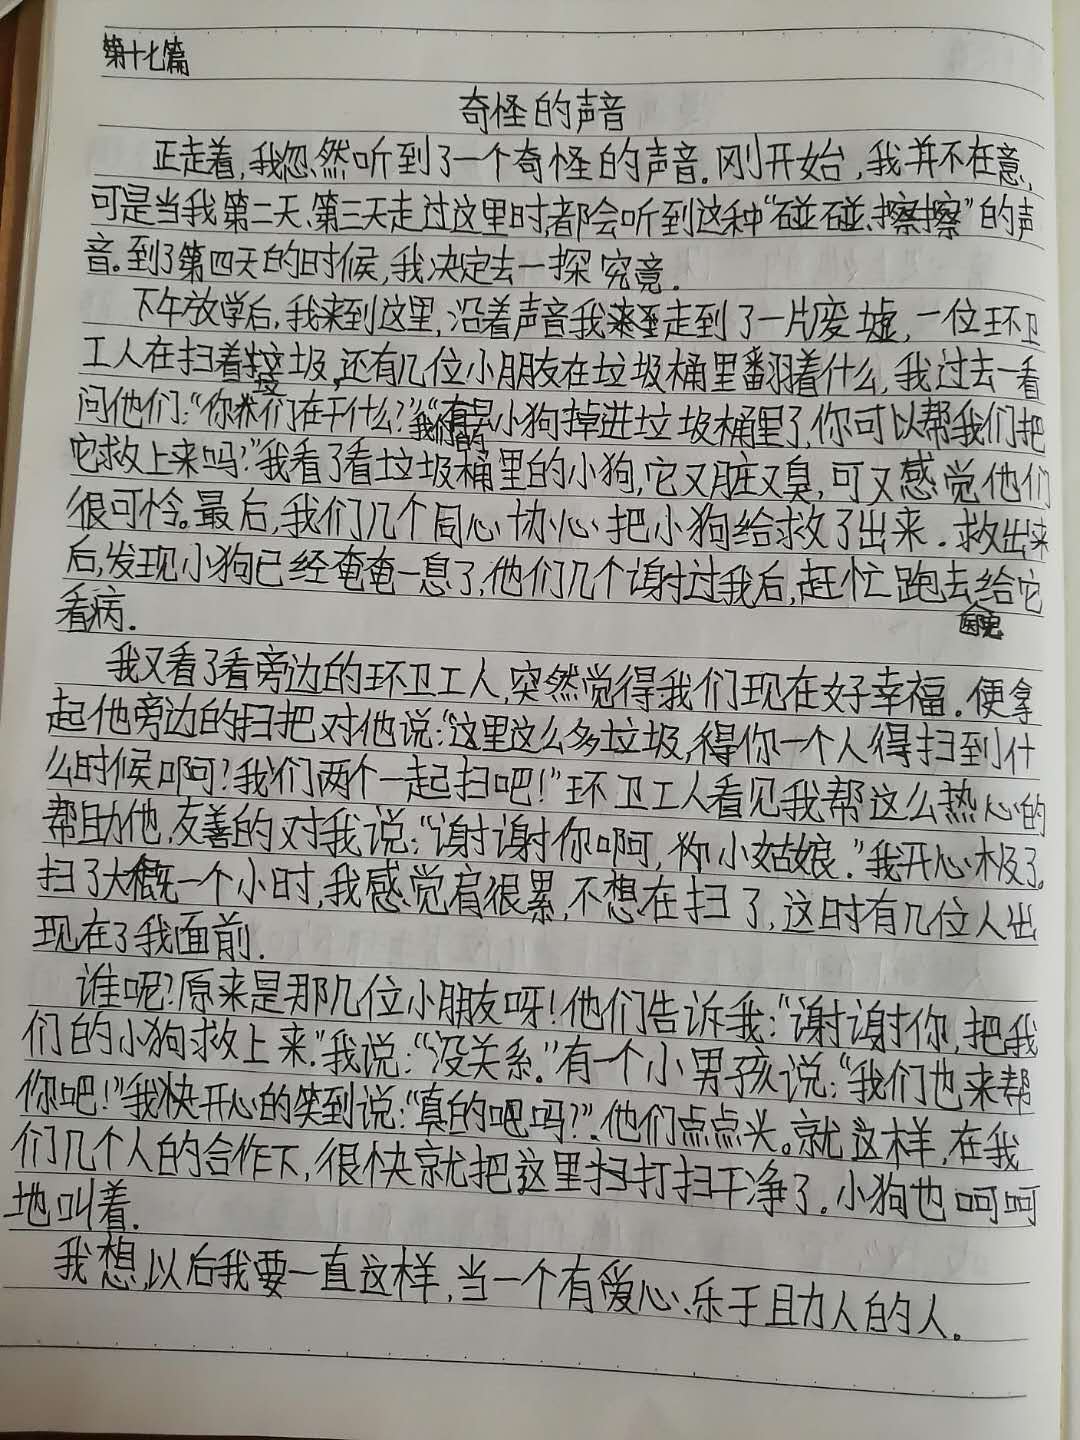 第十七篇
奇怪的声音
正走着,我忽然听到了一个奇怪的声音.刚开始,我并不在意,
可是当我第二天、第三天走过这里时,都会听到这种“碰碰、擦擦”的声
音。到了第四天的时候,我决定去一探究竟.
下午放学后,我来到这里,沿着声音我走到了一片废墟,一位环卫
工人在扫着垃圾,还有几位小朋友在垃圾桶里翻着什么,我过去一看
问他们:“你们在干什么?”“我们的小狗掉进垃圾桶里了,你可以帮我们把
它救上来吗?”我看了看垃圾桶里的小狗,它又脏又臭,可又感觉他们
很可怜。最后,我们几个同心协心把小狗给救了出来.救出来
后,发现小狗已经奄奄一息了,他们几个谢过我后,赶忙跑去给它
看病.
我又看了看旁边的环卫工人,突然觉得我们现在好幸福.便拿
起他旁边的扫把对他说:“这里这么多垃圾,得你一个人得扫到什
么时候啊?我们两个一起扫吧!”环卫工人看见我帮这么热心的
帮助他,友善的对我说:“谢谢你啊,你小姑娘.”我开心极了。
扫了大概一个小时,我感觉肩很累,不想在扫了,这时有几位人出
现在了我面前.
谁呢?原来是那几位小朋友呀!他们告诉我:“谢谢你,把我
们的小狗救上来.”我说:“没关系.”有一个小男孩说:“我们也来帮
你吧!”我快开心的笑到说:“真的吧吗?”.他们点点头。就这样,在我
们几个人的合作下,很快就把这里扫打扫干净了。小狗也呵呵
地叫着.
我想,以后我要一直这样,当一个有爱心、乐于助人的人。